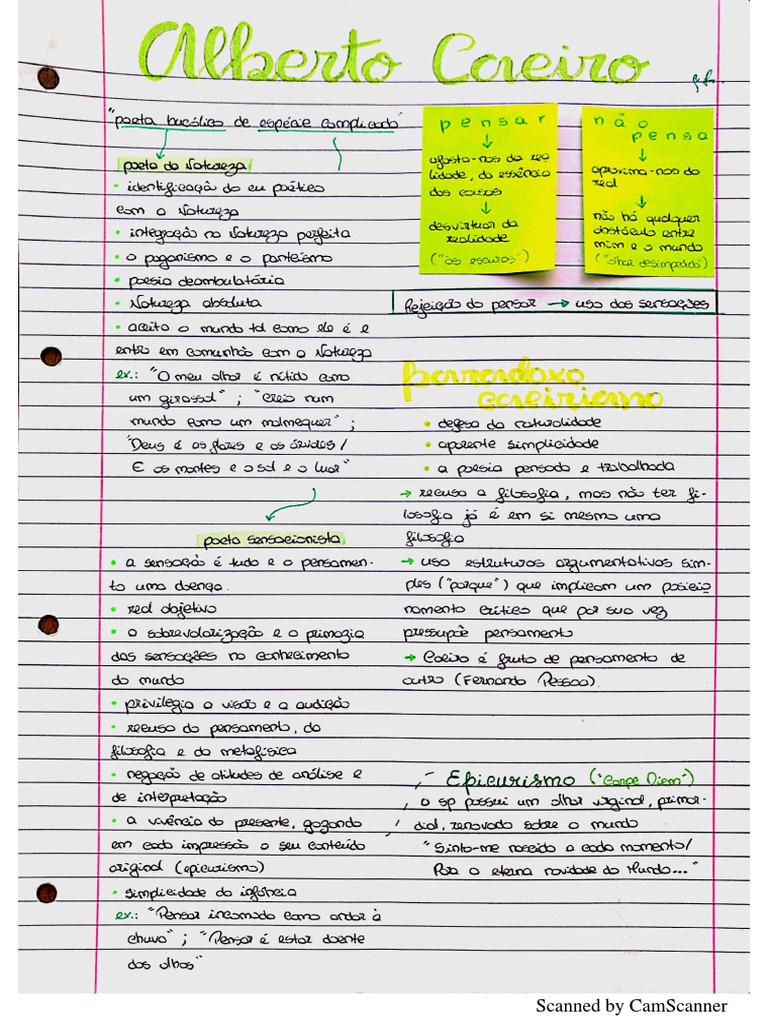 Alberto Caeiro
"poeta bucólico de espécie complicada"
poeta da Natureza
• identificação do eu poético
com a Natureza
• integração na Natureza perfeita
• o paganismo e o panteísmo
• poesia deambulatória
• Natureza absoluta
• aceita o mundo tal como ele é e
entra em comunhão com a Natureza
ex.: "O meu olhar é nítido como
um girassol" ; "Creio num
mundo como um malmequer" ;
"Deus é as flores e as árvores/
E os montes e o sol e o luar"
poeta sensacionista
• a sensação é tudo e o pensamen-
to uma doença.
• real objetivo
• a sobrevalorização e a primazia
das sensações no conhecimento
do mundo
• privilegia a visão e a audição
• recusa do pensamento, da
filosofia e da metafísica
• negação de atitudes de análise e
de interpretação
• a vivência do presente, gozando
em cada impressão o seu conteúdo
original (epicurismo)
• simplicidade da infância
ex.: "Pensar incomoda como andar à
chuva" ; "Pensar é estar doente
dos olhos"
pensar
↓
afasta-nos da rea
lidade, da essência
das coisas
↓
desvirtuar da
realidade
("às escuras")
não
pensa
↓
aproxima-nos do
real
↓
não há qualquer
obstáculo entre
mim e o mundo
("olhar desimpedido")
Rejeição do pensar → uso das sensações
Parradoxo
caeiriano
• defesa da naturalidade
• aparente simplicidade
• a poesia pensada e trabalhada
→ recusa a filosofia, mas não ter fi-
losofia já é em si mesmo uma
filosofia
→ usa estruturas argumentativas sim-
ples ("porque") que implicam um posicio
namento crítico que por sua vez
pressupõe pensamento
→ Caeiro é fruto de pensamento de
outro (Fernando Pessoa).
Epicurismo ("Carpe Diem")
o sp possui um olhar virginal, primor-
dial, renovado sobre o mundo
"Sinto-me nascido a cada momento/
Para a eterna novidade do Mundo..."
Scanned by CamScanner